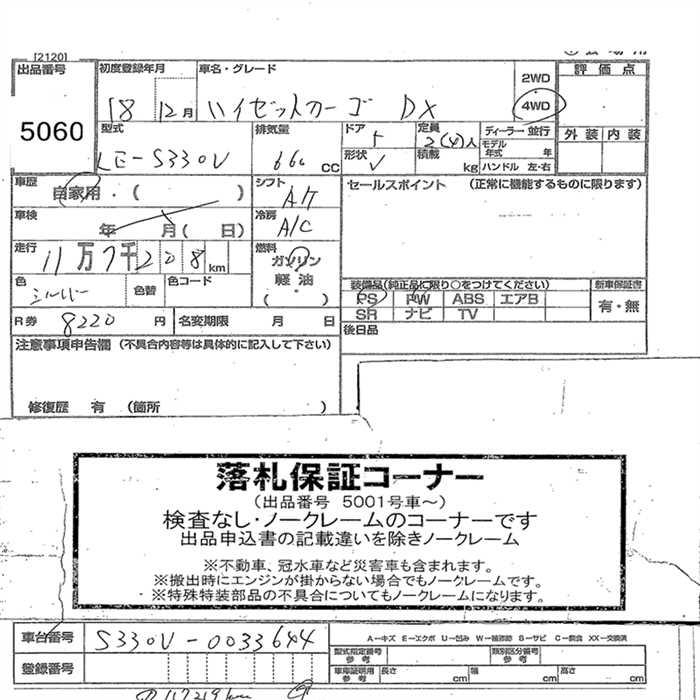 [2120]
出品番号 初度登録年月 車名・グレード 2WD 評価点
5060 18 12月 ハイゼットカーゴ DX 4WD
型式 排気量 ドア 定員 ディーラー 並行 外装 内装
LE-S330V 660cc 5 2(4)人 モデル年式 年
形状 V 積載 kg ハンドル 左・右
車歴 自家用・( ) シフト A/T セールスポイント (正常に機能するものに限ります)
車検 年 月( 日) 冷房 A/C
走行 11万7千208km 燃料 ガソリン
軽油
(・)
色 シルバー 色替 色コード
装備品(純正品に限り○をつけてください) 新車保証書
PS PW ABS エアB 有・無
SR ナビ TV
R券 8220円 名変期限 月 日 後日品
注意事項申告欄 (不具合内容等は具体的に記入して下さい)
修復歴 有 (箇所 )
落札保証コーナー
(出品番号 5001号車~)
検査なし・ノークレームのコーナーです
出品申込書の記載違いを除きノークレーム
※不動車、冠水車など災害車も含まれます。
※搬出時にエンジンが掛からない場合でもノークレームです。
※特殊特装部品の不具合についてもノークレームになります。
車台番号 S330V-0033644 A-キズ E-エクボ U-凹み W-補修跡 S-サビ C-腐食 XX-交換済
型式指定番号 参考 類別区分番号 参考
登録番号 車庫証明用 参考 長さ cm 幅 cm 高さ cm